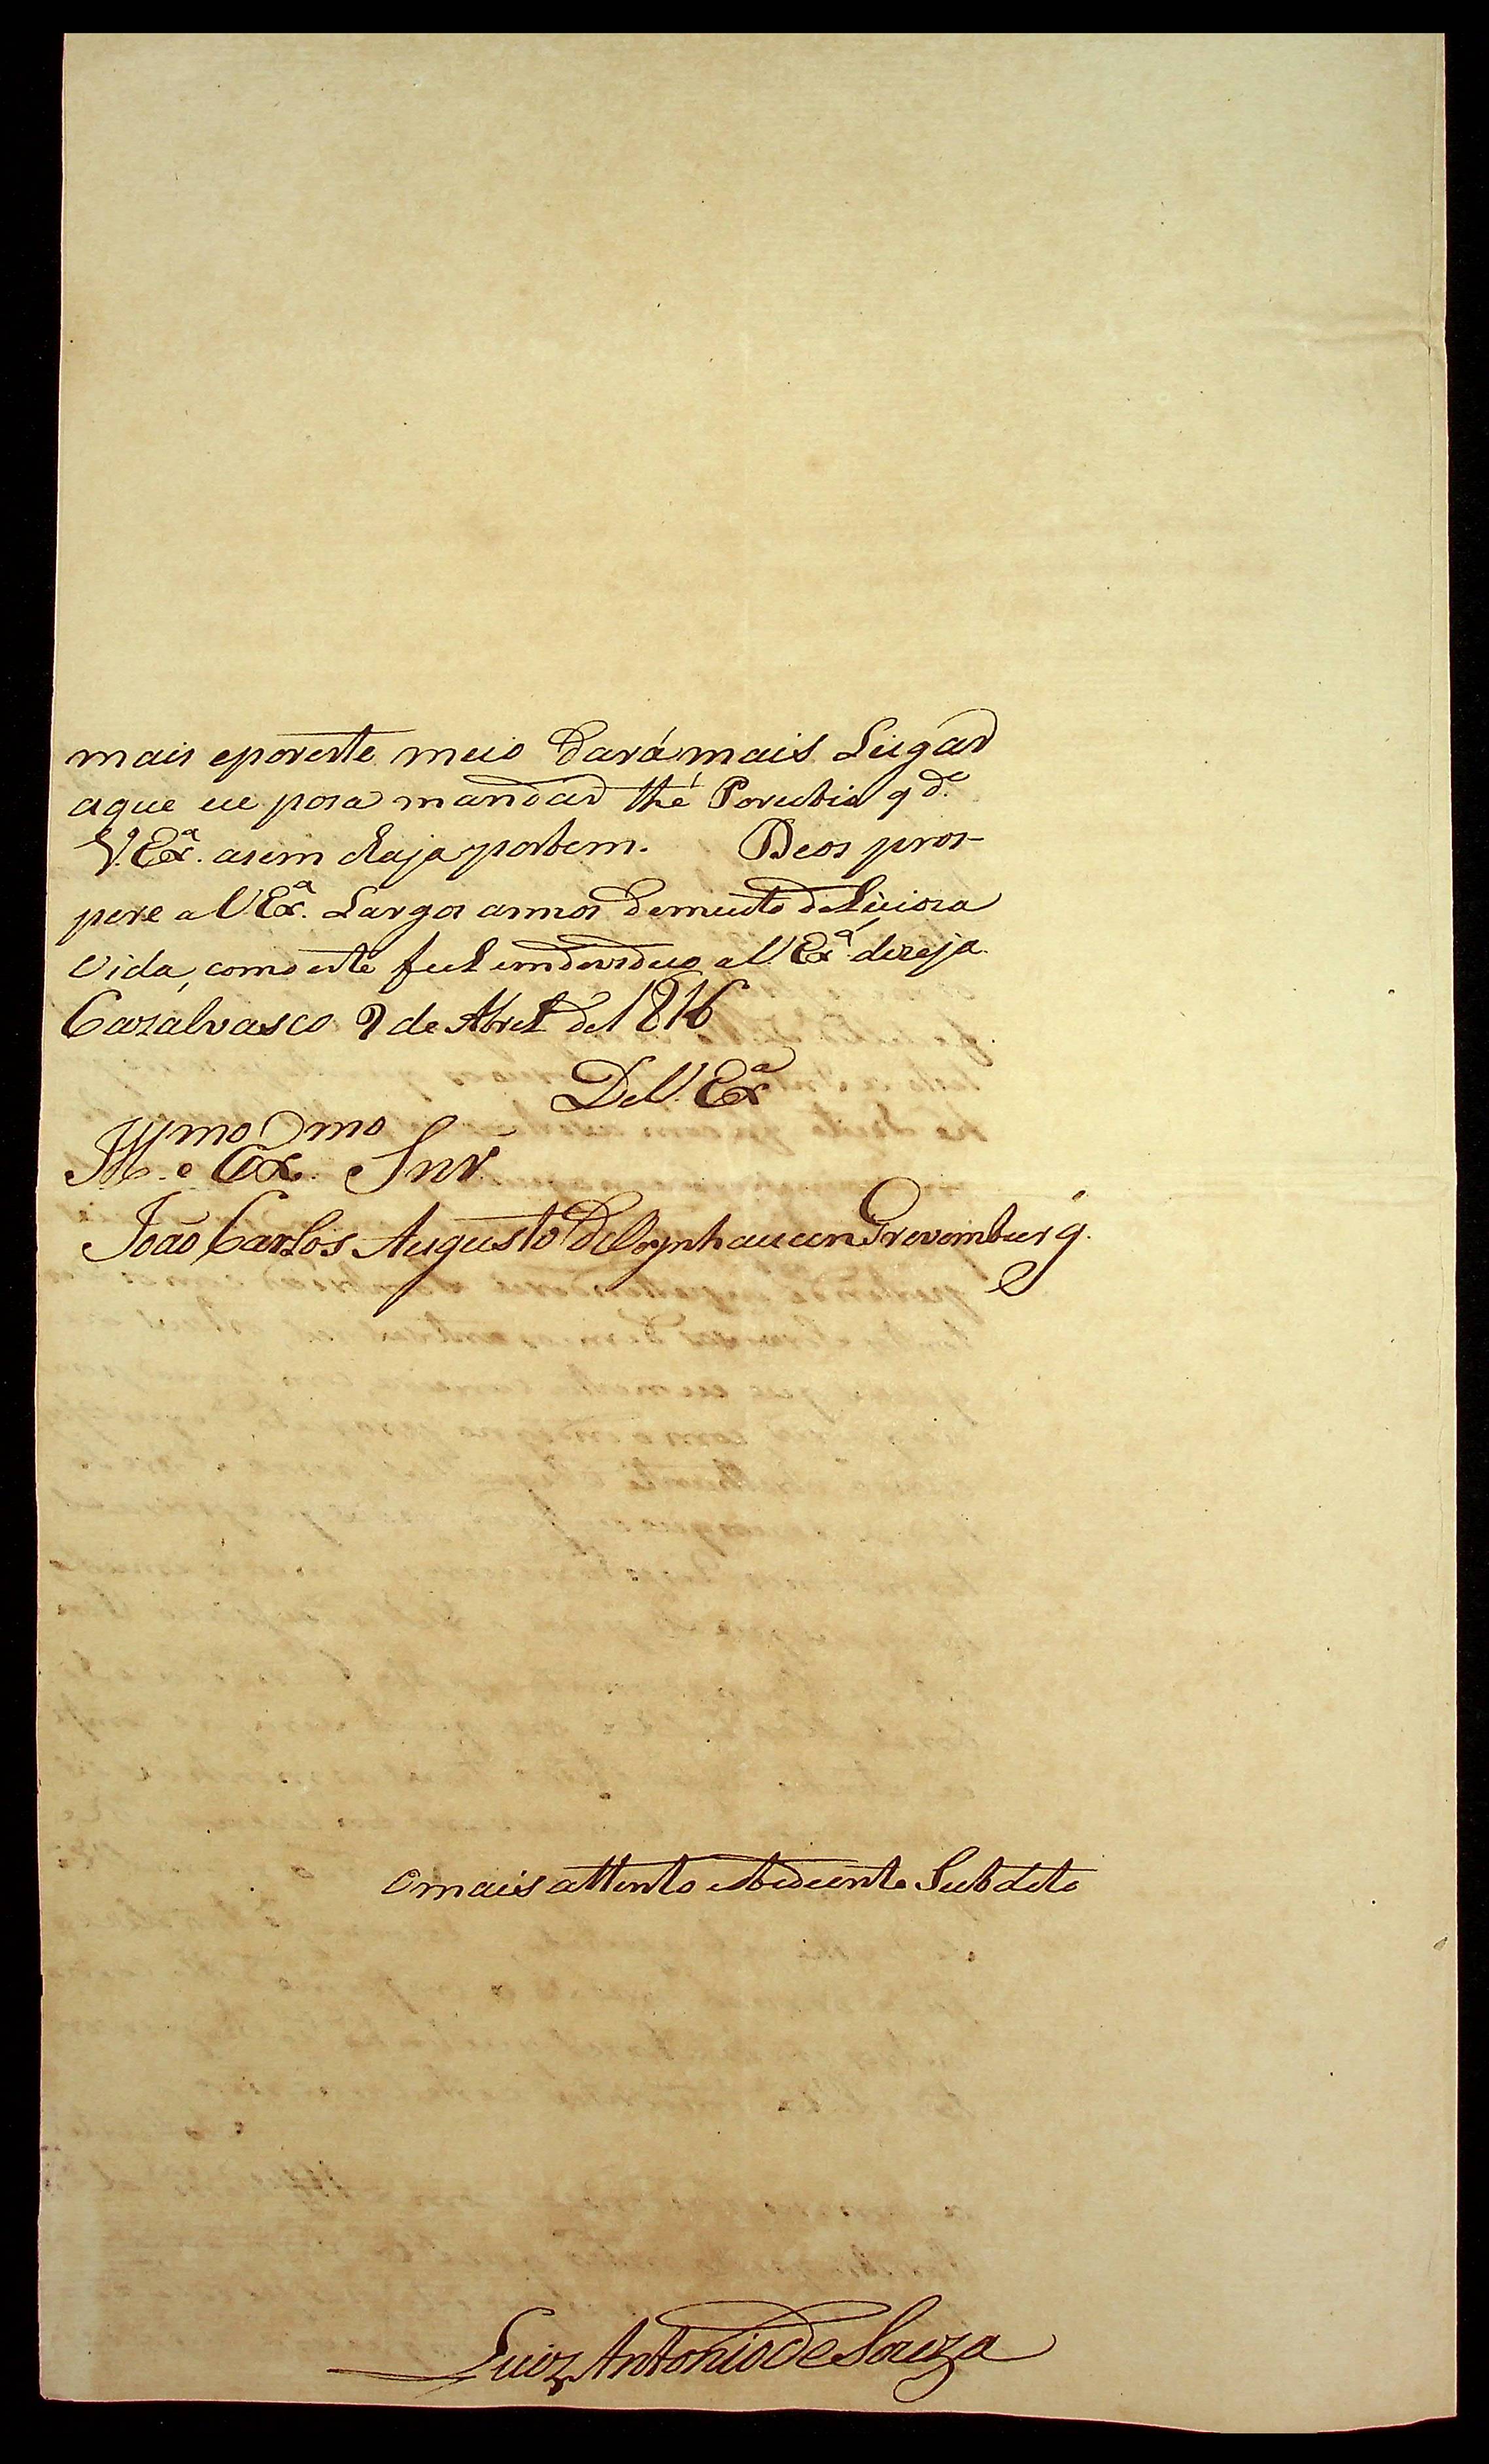 mais eporeste meio dará mais Lugar
aque eu posa mandar thé Porubia q.do
V. Exa. asim haja por bem. Deos pros-
pere a V Exa. Largos annos de muito deLiciosa
Vida, como este fieL emdeviduo a V. Exa. dezeja.
Cazalvasco 9 de AbriL de 1816
De V. Exa
Illmo. e Exmo. Snr.
João CarLos Augusto de Oeynhausen Grevemburg.
O mais attento obediente Subdito
Luiz Antonio de Souza